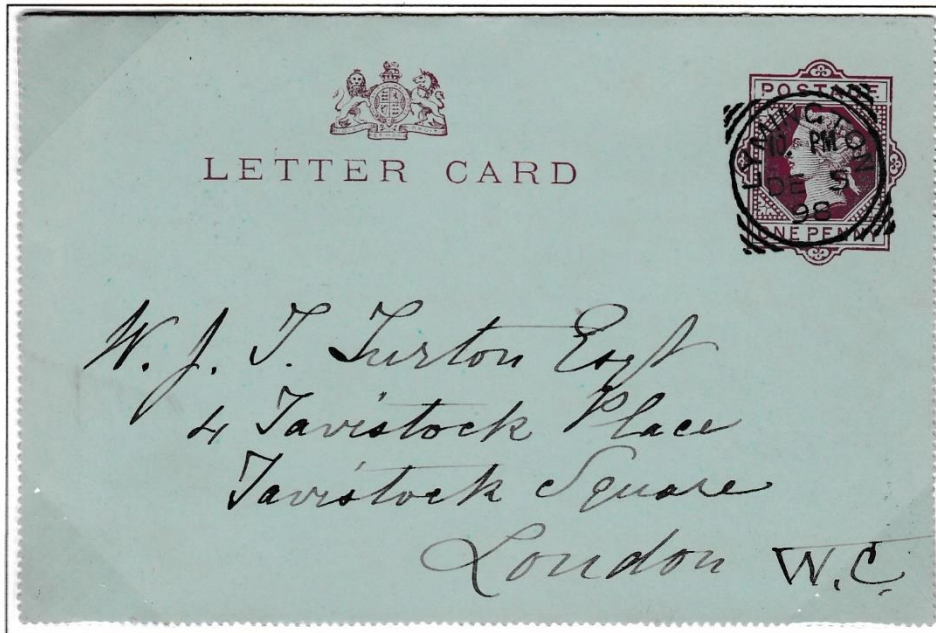 LETTER CARD
POSTAGE
ONE PENNY
LYMINGTON
10. PM
DE 5
98
W. J. T. Turton Esqr
4 Tavistock Place
Tavistock Square
London W.C.